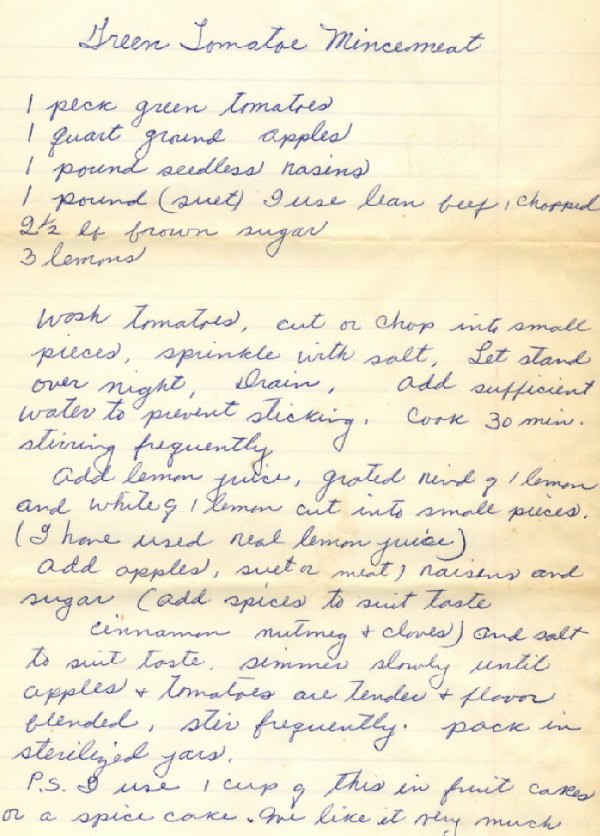 Green Tomatoe Mincemeat
1 peck green tomatoes
1 quart ground apples
1 pound seedless rasins
1 pound (suet) I use lean beef, chopped
2½ lb brown sugar
3 lemons
Wash tomatoes, cut or chop into small
pieces, sprinkle with salt. Let stand
over night, Drain, add sufficient
water to prevent sticking. Cook 30 min.
stirring frequently
Add lemon juice, grated rind of 1 lemon
and white of 1 lemon cut into small pieces.
(I have used real lemon juice)
Add apples, suet or meat) raisins and
sugar (add spices to suit taste
cinnamon nutmeg + cloves) and salt
to suit taste. simmer slowly until
apples + tomatoes are tender + flavor
blended, stir frequently. pack in
sterilized jars.
P.S. I use 1 cup of this in fruit cakes
or a spice cake. We like it very much